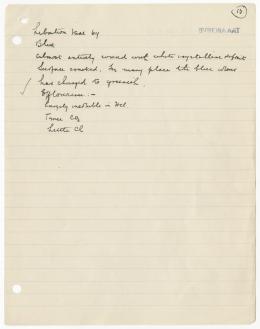 (10)
Libation Vase by
Blue
almost entirely covered with white crystalline deposit
Surface cracked. In many place the blue
has changed to greenish.
Efflorescence :-
Largely insoluble in HCl
Trace CO2
Little Cl